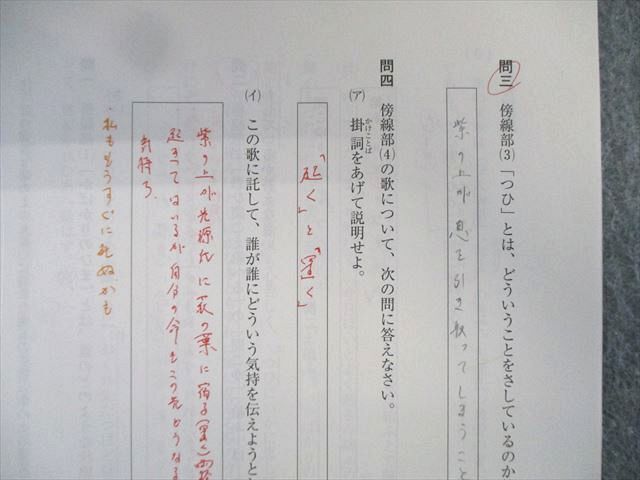 問三 傍線部(3)「つひ」とは、どういうことをさしているのか
紫の上が息を引き取ってしまうこと
問四 傍線部(4)の歌について、次の問に答えなさい。
(ア) 掛詞をあげて説明せよ。
かけことば
「起く」と「置く」
(イ) この歌に託して、誰が誰にどういう気持を伝えようと
紫の上が光源氏に萩の葉に宿る(置く)露
起きてはいるが自分の命もこの先どうなる
気持ち、
私ももうすぐに死ぬかも